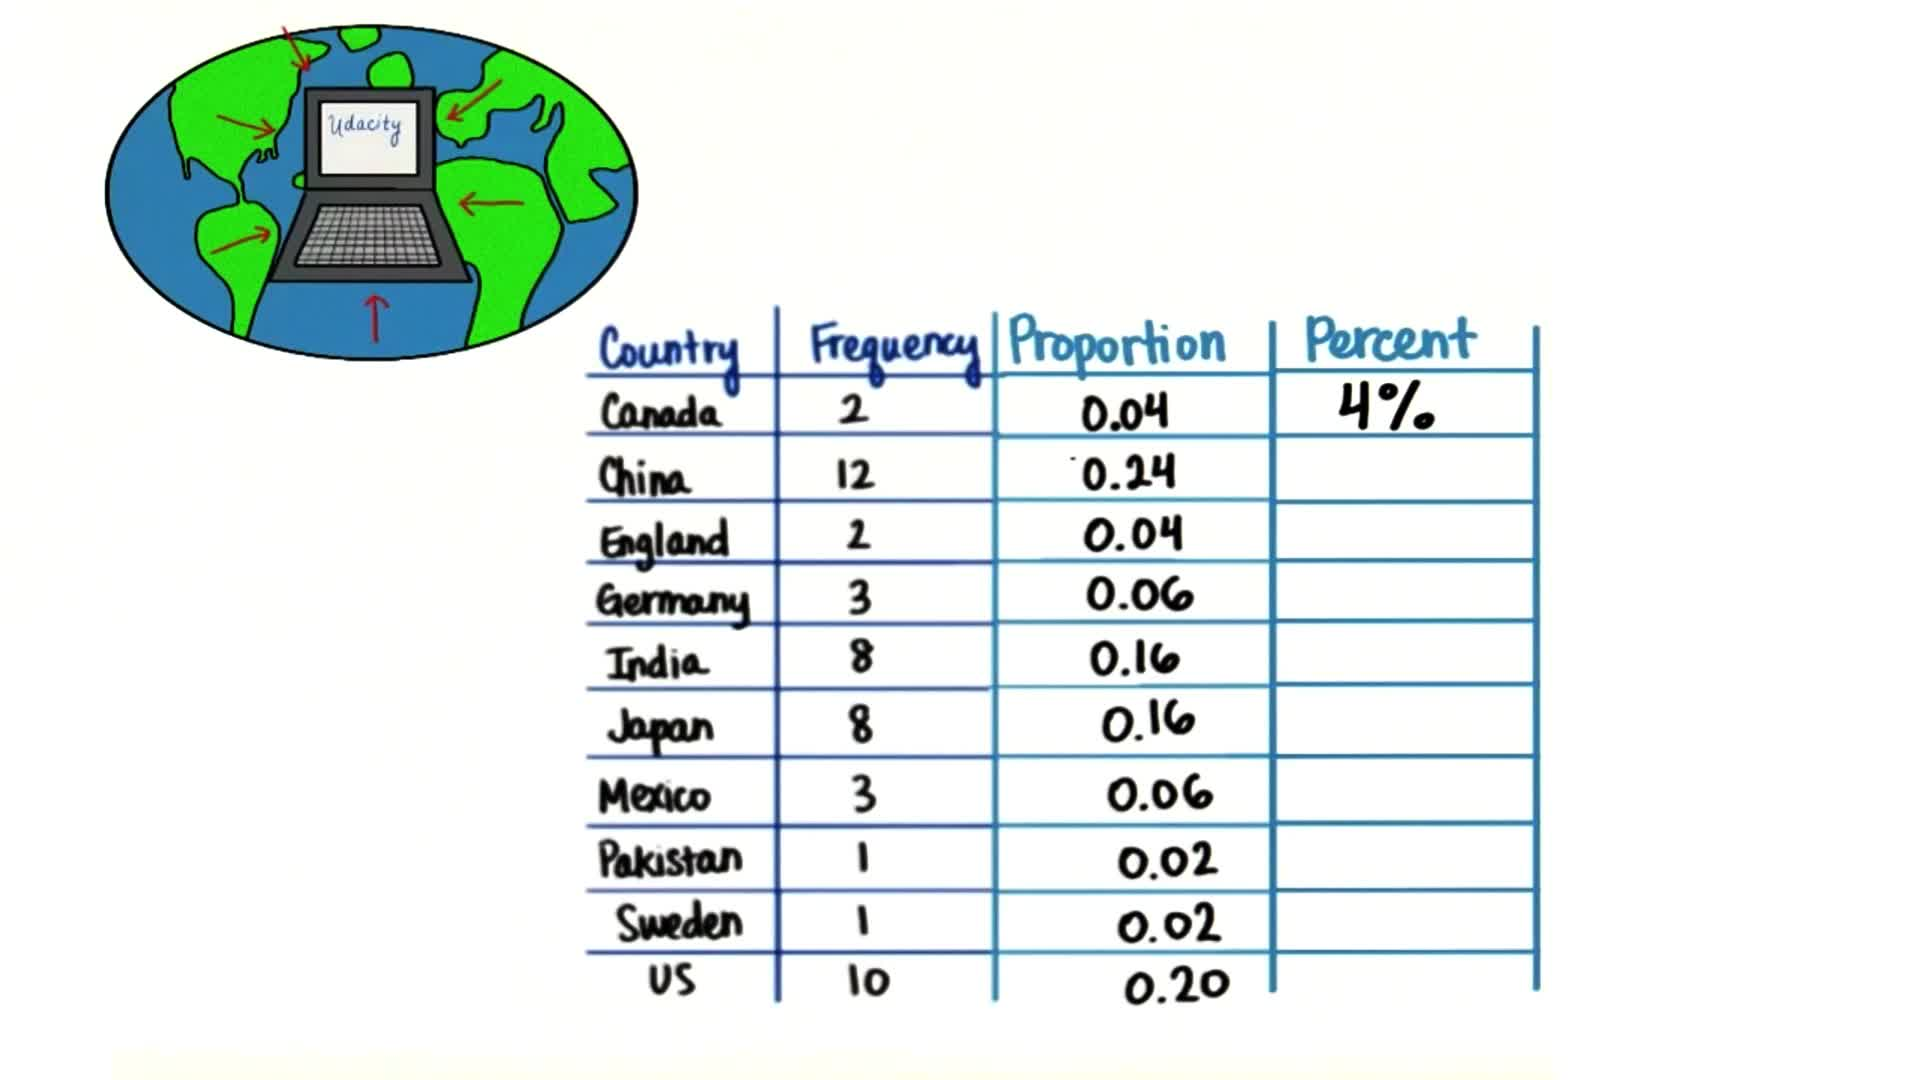 Udacity
Country Frequency Proportion Percent
Canada 2 0.04 4%
China 12 0.24
England 2 0.04
Germany 3 0.06
India 8 0.16
Japan 8 0.16
Mexico 3 0.06
Pakistan 1 0.02
Sweden 1 0.02
US 10 0.20